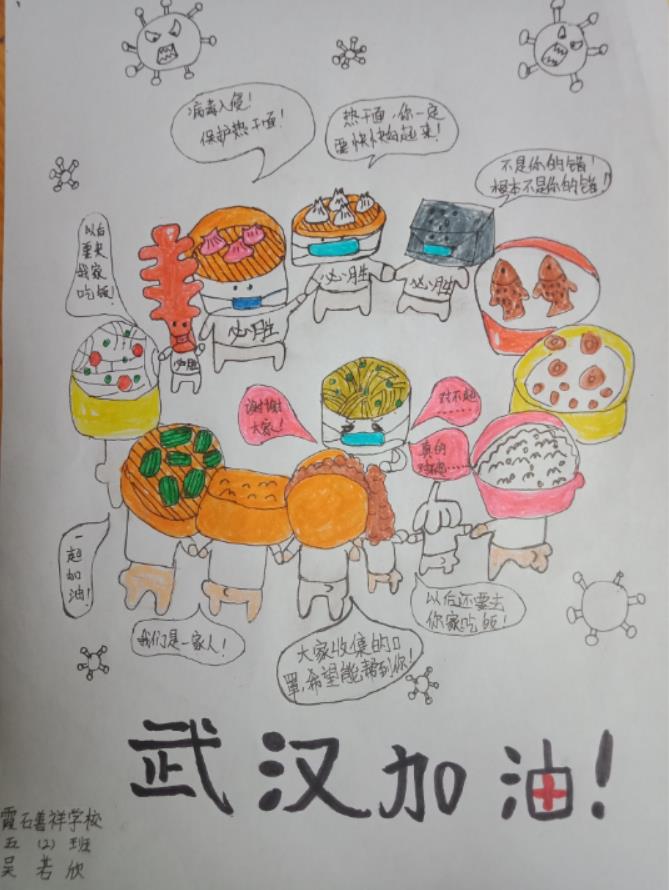 病毒入侵！
保护热干面！
热干面，你一定
要快快好起来！
不是你的错！
根本不是你的错！
以后
要来
我家
吃饭！
必胜
必胜
必胜
必胜
谢谢
大家！
对不起
……
真的
对不起……
一
起
加
油！
我们是一家人！
大家收集的口
罩，希望能帮到你！
以后还要去
你家吃饭！
武汉加油！
霞石善祥学校
五（2）班
吴若欣